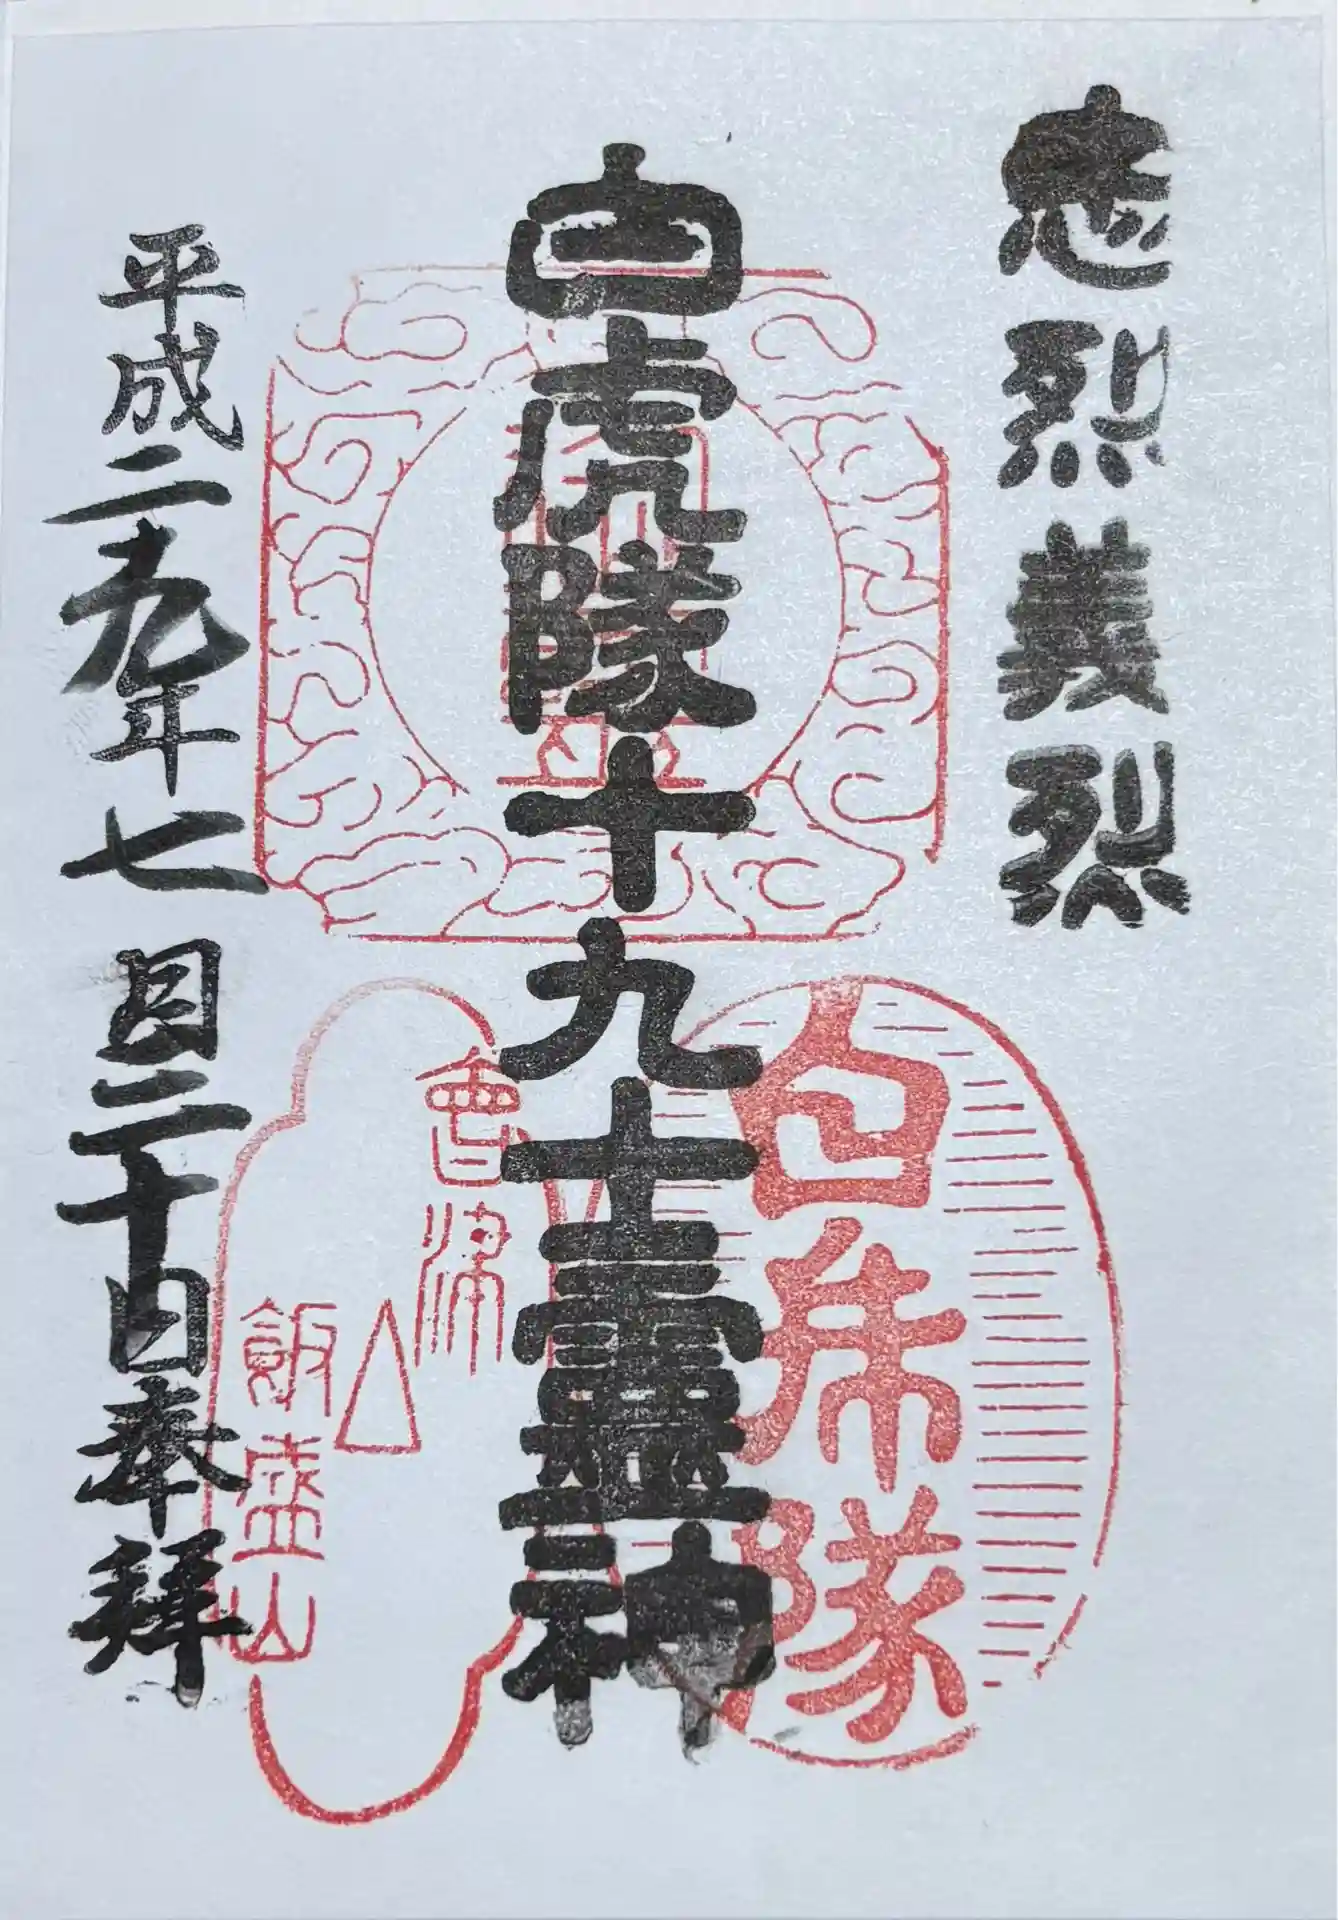 忠烈義烈
白虎隊十九士霊神
平成二九年七月二十日奉拝
白虎隊
會津
飯盛山